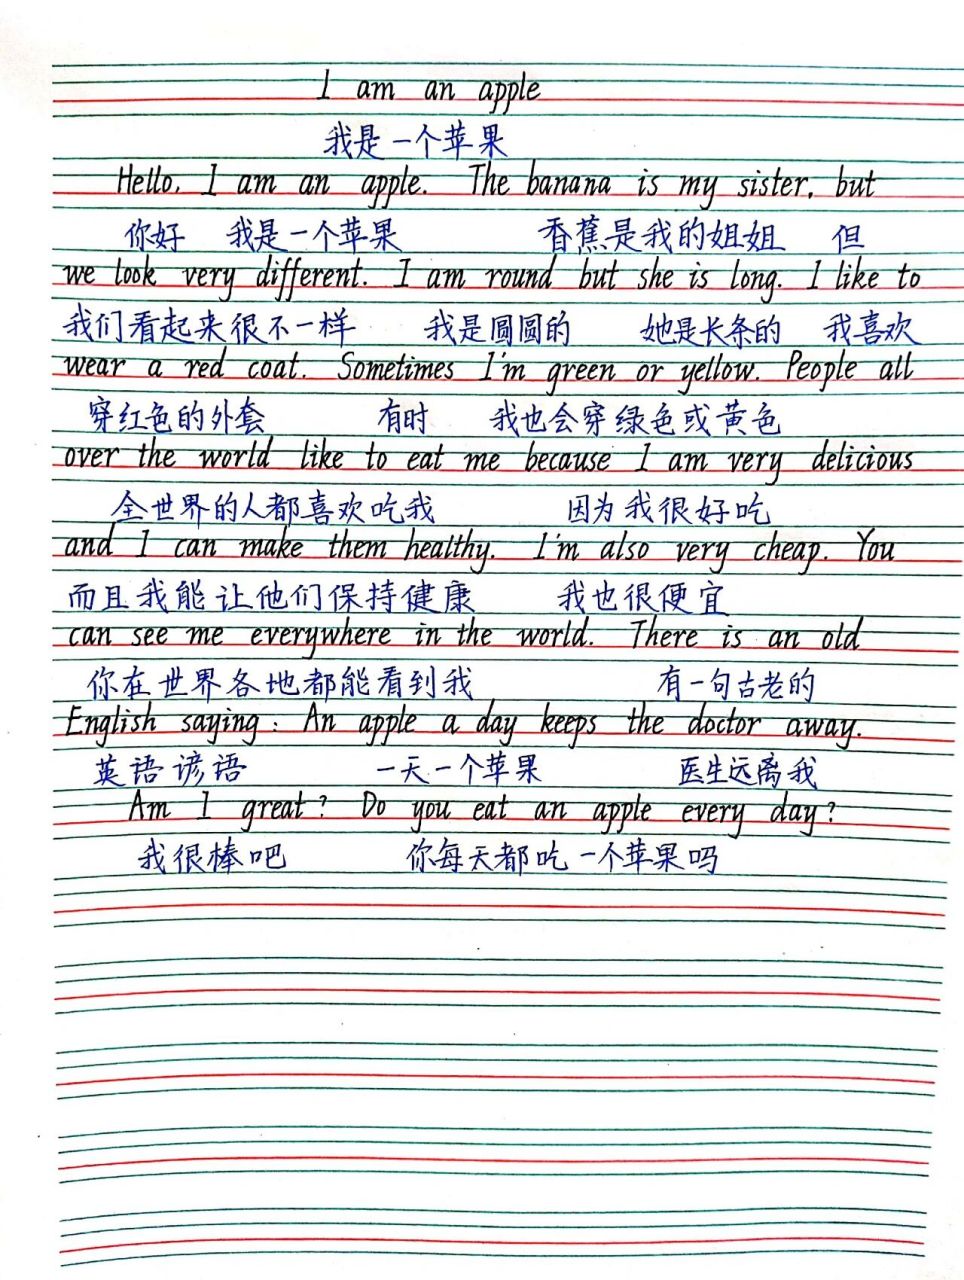 I am an apple
我是一个苹果
Hello, I am an apple. The banana is my sister, but
你好 我是一个苹果 香蕉是我的姐姐 但
we look very different. I am round but she is long. I like to
我们看起来很不一样 我是圆圆的 她是长条的 我喜欢
wear a red coat. Sometimes I'm green or yellow. People all
穿红色的外套 有时 我也会穿绿色或黄色
over the world like to eat me because I am very delicious
全世界的人都喜欢吃我 因为我很好吃
and I can make them healthy. I'm also very cheap. You
而且我能让他们保持健康 我也很便宜
can see me everywhere in the world. There is an old
你在世界各地都能看到我 有一句古老的
English saying: An apple a day keeps the doctor away.
英语谚语 一天一个苹果 医生远离我
Am I great? Do you eat an apple every day?
我很棒吧 你每天都吃一个苹果吗